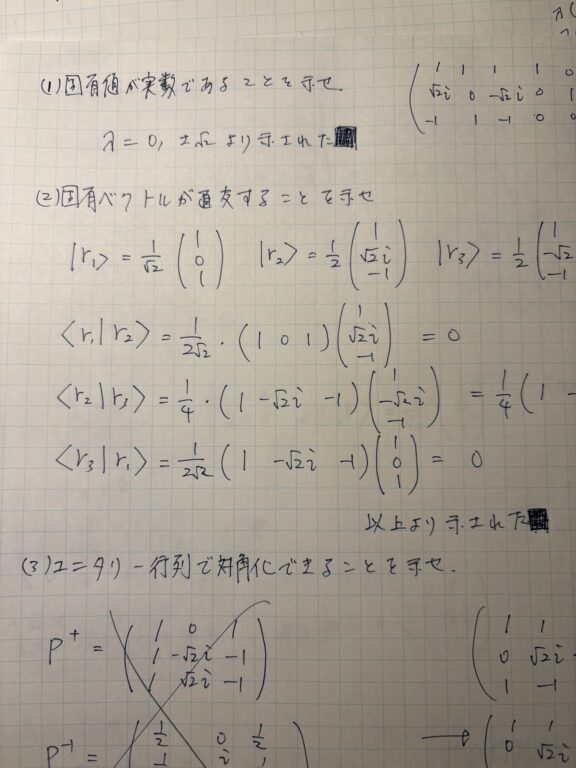 (1) 固有値が実数であることを示せ
λ = 0, ±√2 より示された■
( 1 1 1 1 0
√2i 0 -√2i 0 1
-1 1 -1 0 0
(2) 固有ベクトルが直交することを示せ
|r₁> = 1/√2 (1 0 1) |r₂> = 1/2 (1 √2i -1) |r₃> = 1/2 (1 -√2 -1
<r₁|r₂> = 1/2√2 · (1 0 1) (1 √2i -1) = 0
<r₂|r₃> = 1/4 · (1 -√2i -1) (1 -√2i -1) = 1/4 (1 -
<r₃|r₁> = 1/2√2 (1 -√2i -1) (1 0 1) = 0
以上より示された■
(3) ユニタリー行列で対角化できることを示せ.
P⁺ = (1 0 1
1 -√2i -1
1 √2i -1)
(1 1
0 √2i
1 -1
P⁻¹ = (1/2 0 1/2
→ (1 1
0 √2i